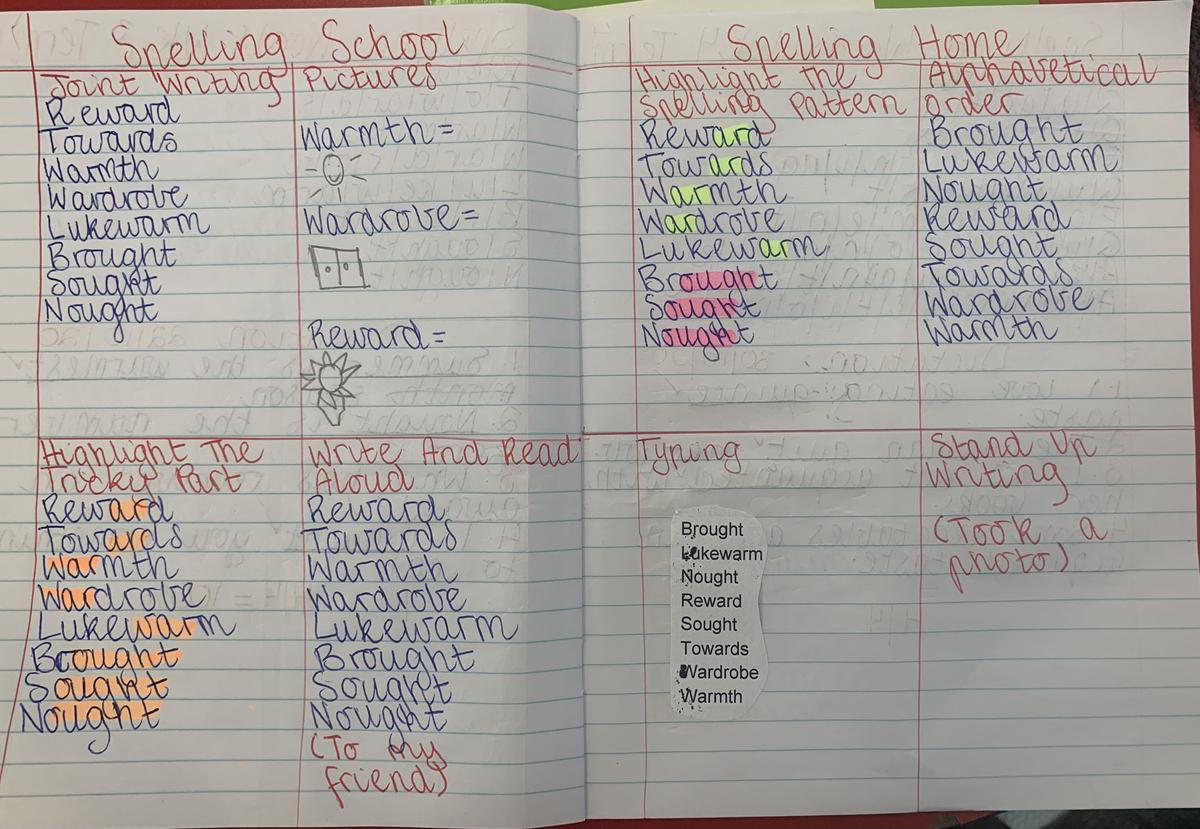 Spelling School
Joint Writing
Reward
Towards
Warmth
Wardrobe
Lukewarm
Brought
Sought
Nought
Pictures
Warmth =
Wardrobe =
Reward =
Highlight The
Tricky Part
Reward
Towards
Warmth
Wardrobe
Lukewarm
Brought
Sought
Nought
Write And Read
Aloud
Reward
Towards
Warmth
Wardrobe
Lukewarm
Brought
Sought
Nought
(To my
friend)
Spelling Home
Highlight the
Spelling Pattern
Reward
Towards
Warmth
Wardrobe
Lukewarm
Brought
Sought
Nought
Alphabetical
order
Brought
Lukewarm
Nought
Reward
Sought
Towards
Wardrobe
Warmth
Typing
Brought
Lukewarm
Nought
Reward
Sought
Towards
Wardrobe
Warmth
Stand Up
Writing
(Took a
photo)